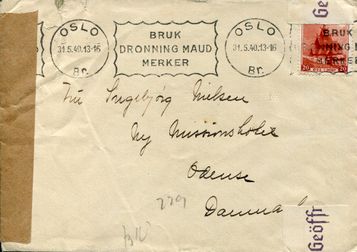 OSLO
31.5.40.13-16
Br.
BRUK
DRONNING MAUD
MERKER
OSLO
31.5.40.13-16
Br.
BRUK
MERKER
20 20
Ge
Fru Ingebjørg Nielsen
Ny Missionshotel
Odense
Danma
229
Geöff